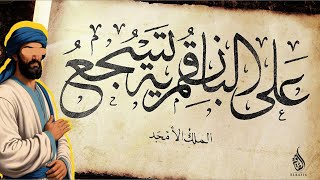 على البان قمرية تسجع
الملك الأمجد